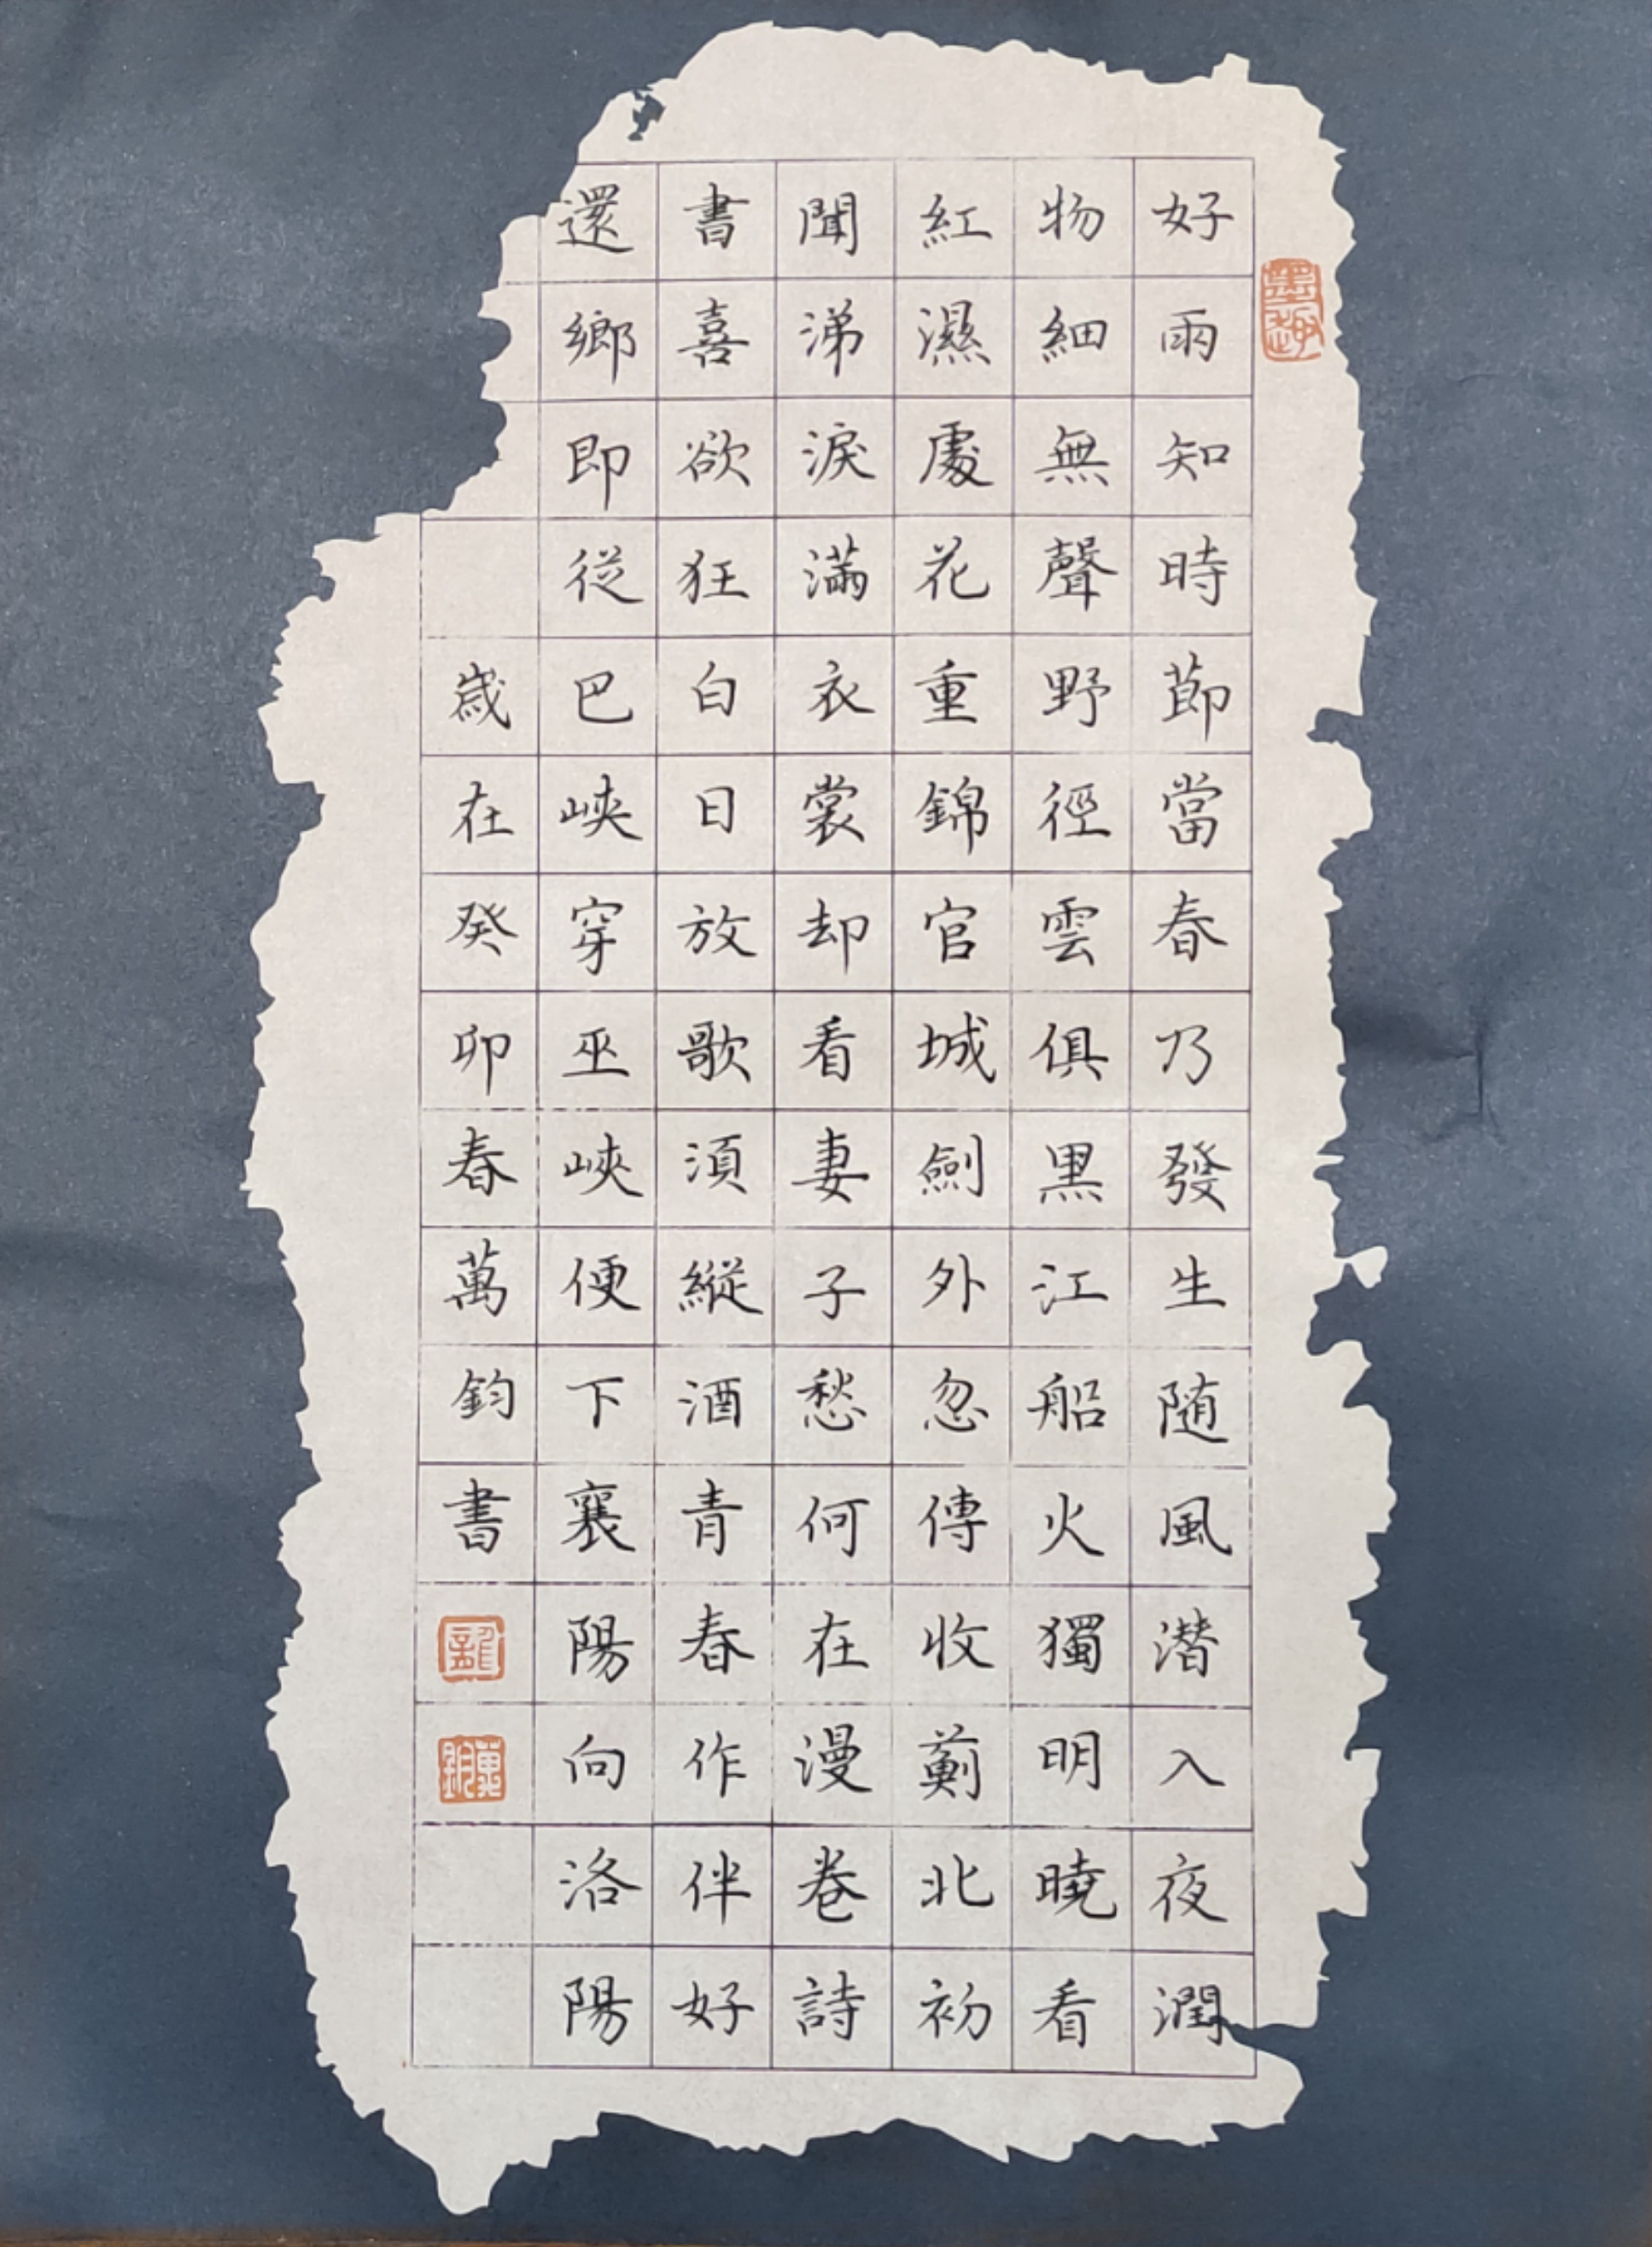 好雨知時節當春乃發生随風潜入夜潤
物細無聲野徑雲俱黑江船火獨明曉看
紅濕處花重錦官城劍外忽傳收薊北初
聞涕淚滿衣裳却看妻子愁何在漫卷詩
書喜欲狂白日放歌須縱酒青春作伴好
還鄉即從巴峽穿巫峽便下襄陽向洛陽
歲在癸卯春萬鈞書